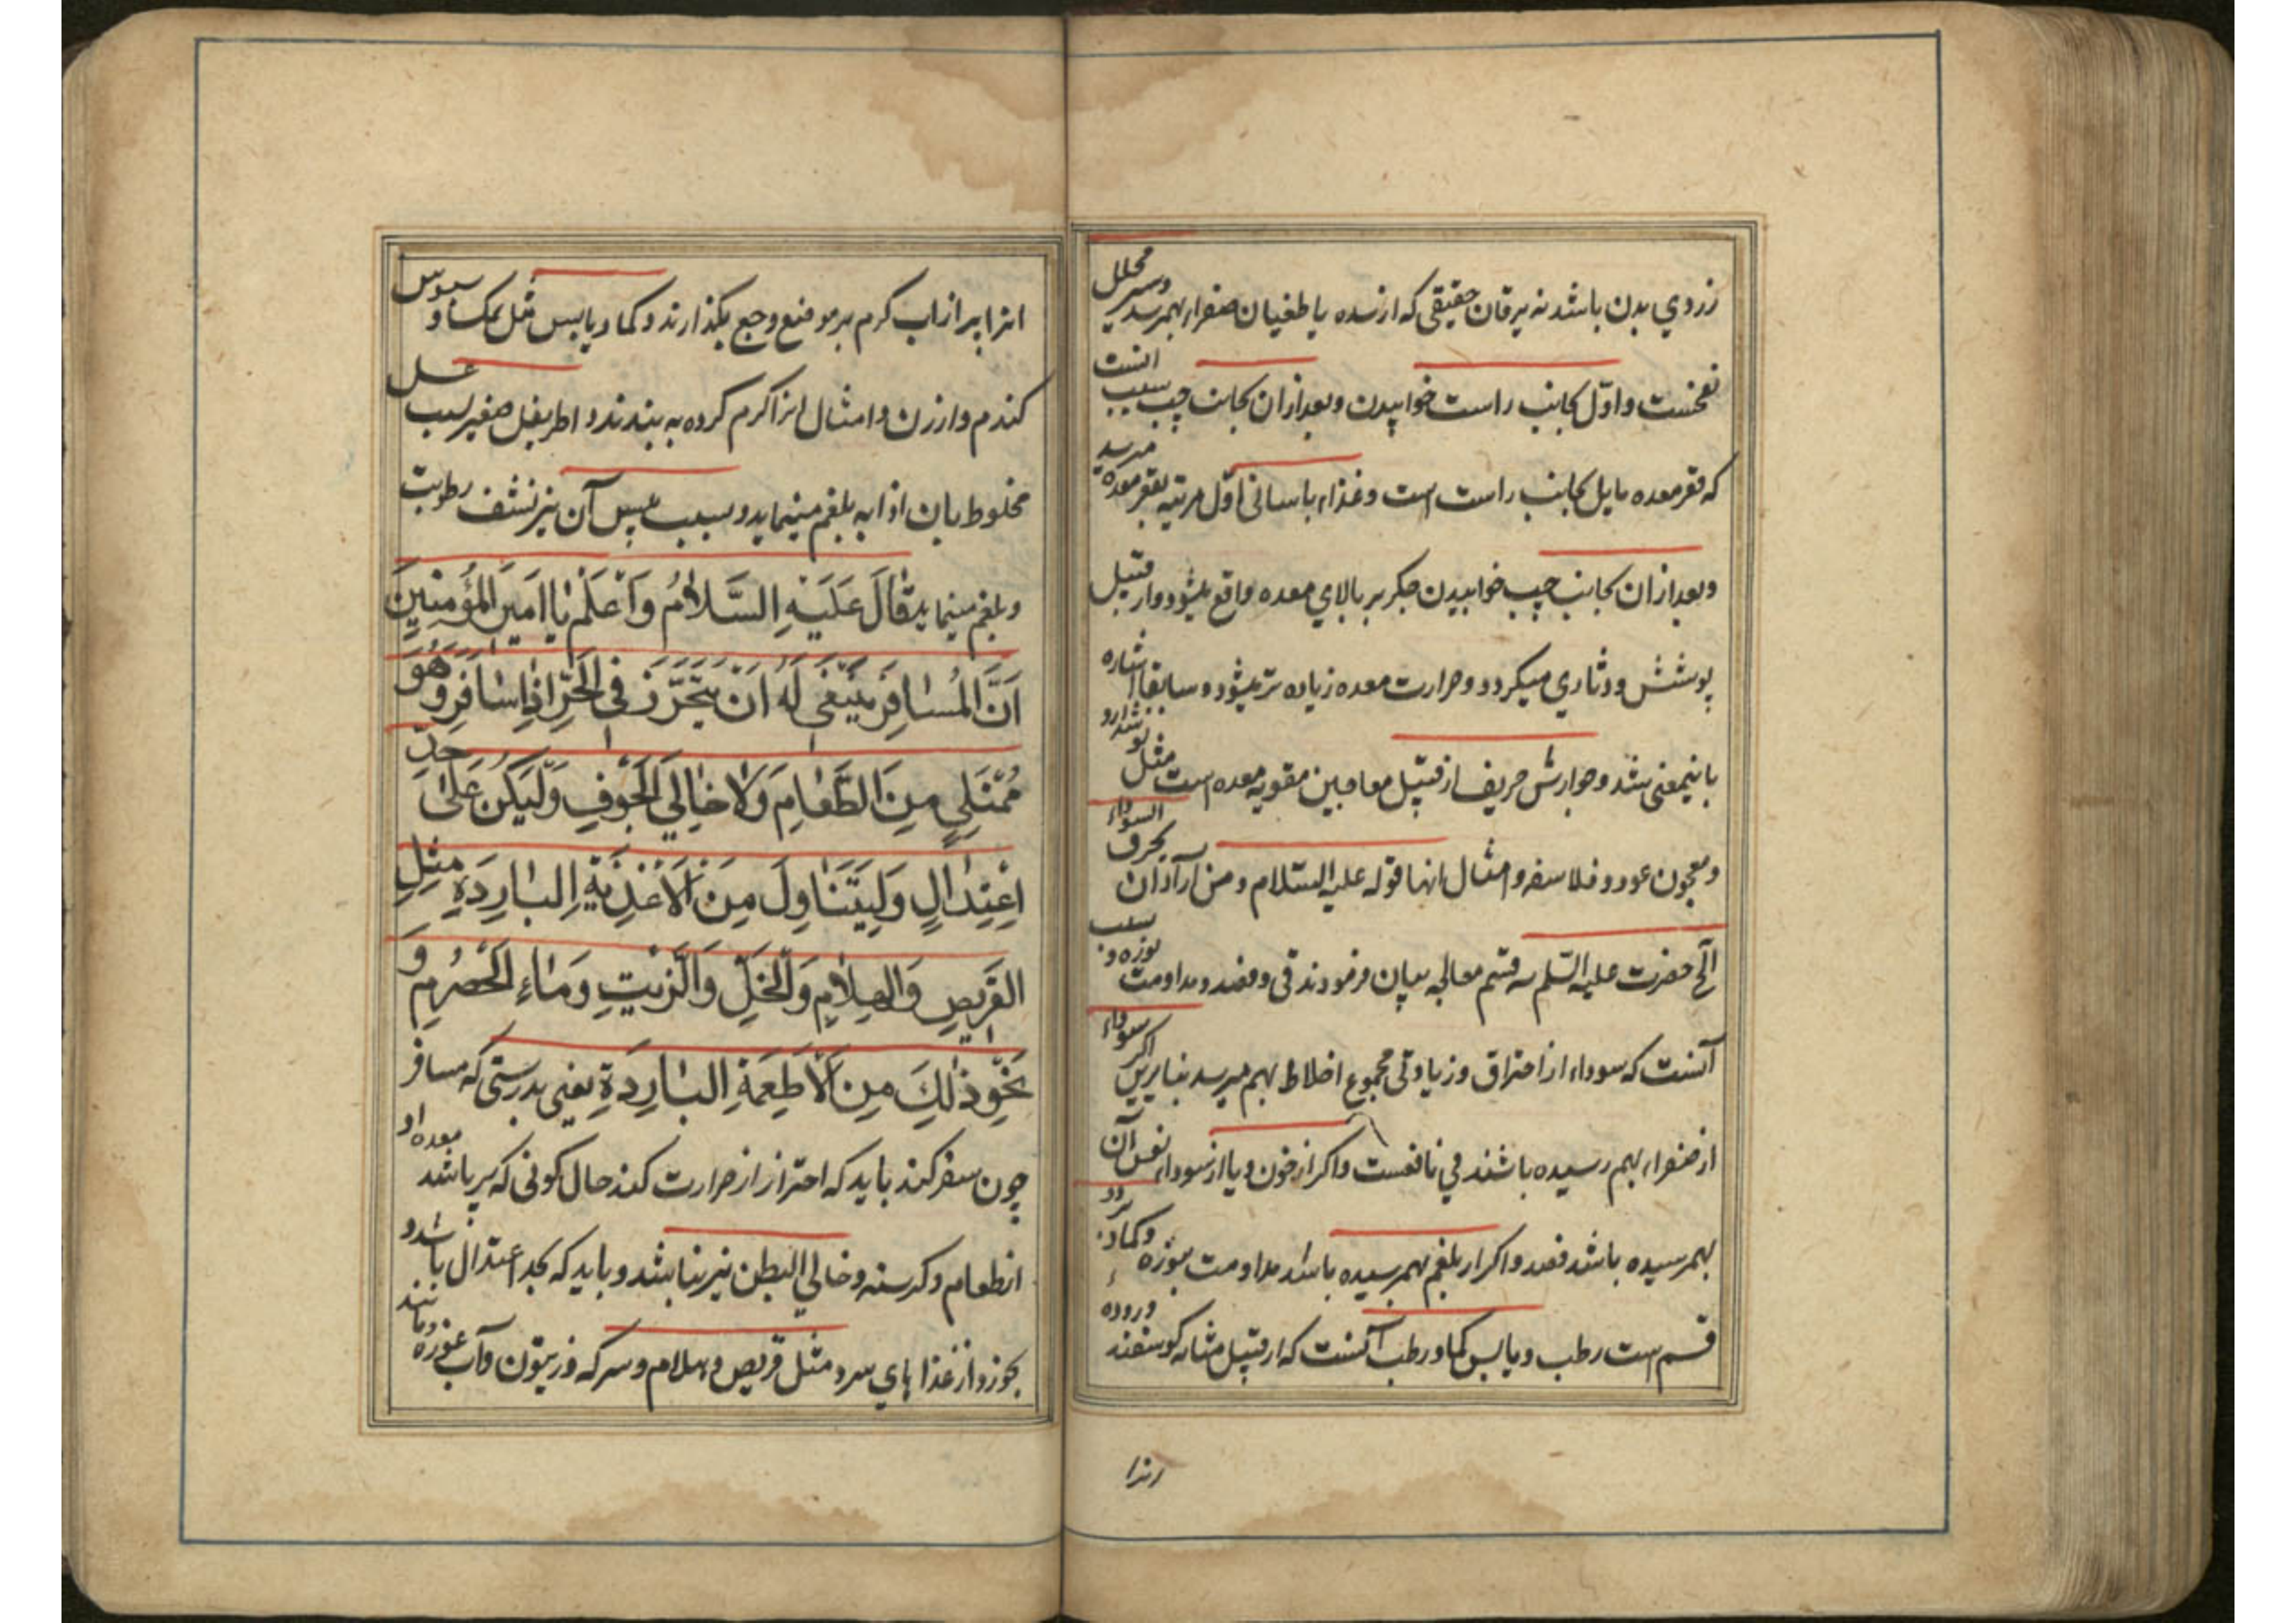 زردي بدن باشد نه يرقان حقيقى كه از سده يا طغيان صفراء بهمرسد و سير محلل
نفخست و اوّل بجانب راست خوابيدن و بعد از ان بجانب چپ بسبب انست
كه قعر معده مايل بجانب راست است و غذاء باسانى اوّل مرتبه بقعر معده ميرسد
و بعد از ان بجانب چپ خوابيدن جكر بر بالاي معده واقع ميشود و از قبيل
پوشش و دثاري ميكردد و حرارت معده زياده تر ميشود و سابقا اشاره
باينمعنى شد و جوارش حريف از قبيل معاجين مقويه معده است مثل نوشدارو
و معجون عود و فلاسفه و امثال انها قوله عليه السّلام و من اراد ان يحرق السوداء
الخ حضرت عليه السّلم سه قسم معالجه بيان فرمودند قى و فصد و مداومت بنوره و سبب
آنست كه سوداء از احتراق و زيادتى مجموع اخلاط بهم ميرسد بنابرين اكر سوداء
از صفراء بهم رسيده باشند قي نافعست و اكر از خون و يا از سوداء نفس آن
بهمرسيده باشد فصد و اكر از بلغم بهمرسيده باشد مداومت بنوره و كماد بر دو
قسم است رطب و يابس كماد رطب آنست كه از قبيل مثانه كوسفند و روده
انرا پر از اب كرم بر موضع وجع بكذارند و كماد يابس مثل نمك و سبوس
كندم و ارزن و امثال انرا كرم كرده به بندند و اطريفل صغير بسبب عسل
مخلوط بان اذابه بلغم مينمايد و بسبب يبس آن نيز نشف رطوبت
و بلغم مينمايد قَالَ عَلَيْهِ السَّلَامُ وَاَعْلَمْ يٰا اَمِيرَ الْمُؤْمِنِينَ
اَنَّ الْمُسٰافِرَ يَنْبَغِى لَهُ اَنْ يَتَحَرَّزَ فِى الْحَرِّ اِذٰا سٰافَرَ وَهُوَ
مُمْتَلِي مِنَ الطَّعٰامِ وَلٰا خٰالِي الْجَوْفِ وَلْيَكُنْ عَلٰى حَدِّ
اِعْتِدٰالٍ وَلْيَتَنٰاوَلْ مِنَ الْاَغْذِيَةِ الْبٰارِدَةِ مِثْلِ
الْقَرِيصِ وَالْهِلٰامِ وَالْخَلِّ وَالزَّيْتِ وَمٰاءِ الْحِصْرِمِ وَ
نَحْوِ ذٰلِكَ مِنَ الْاَطْعِمَةِ الْبٰارِدَةِ يعنى بدرستى كه مسافر
چون سفر كند بايد كه احتراز از حرارت كند حال كونى كه پر باشد معده او
از طعام و كرسنه و خالي البطن نيز نباشد و بايد كه بحد اعتدال باشد و
بخورد از غذا هاي سرد مثل قريص و هلام و سركه و زيتون و آب غوره و مانند
انرا